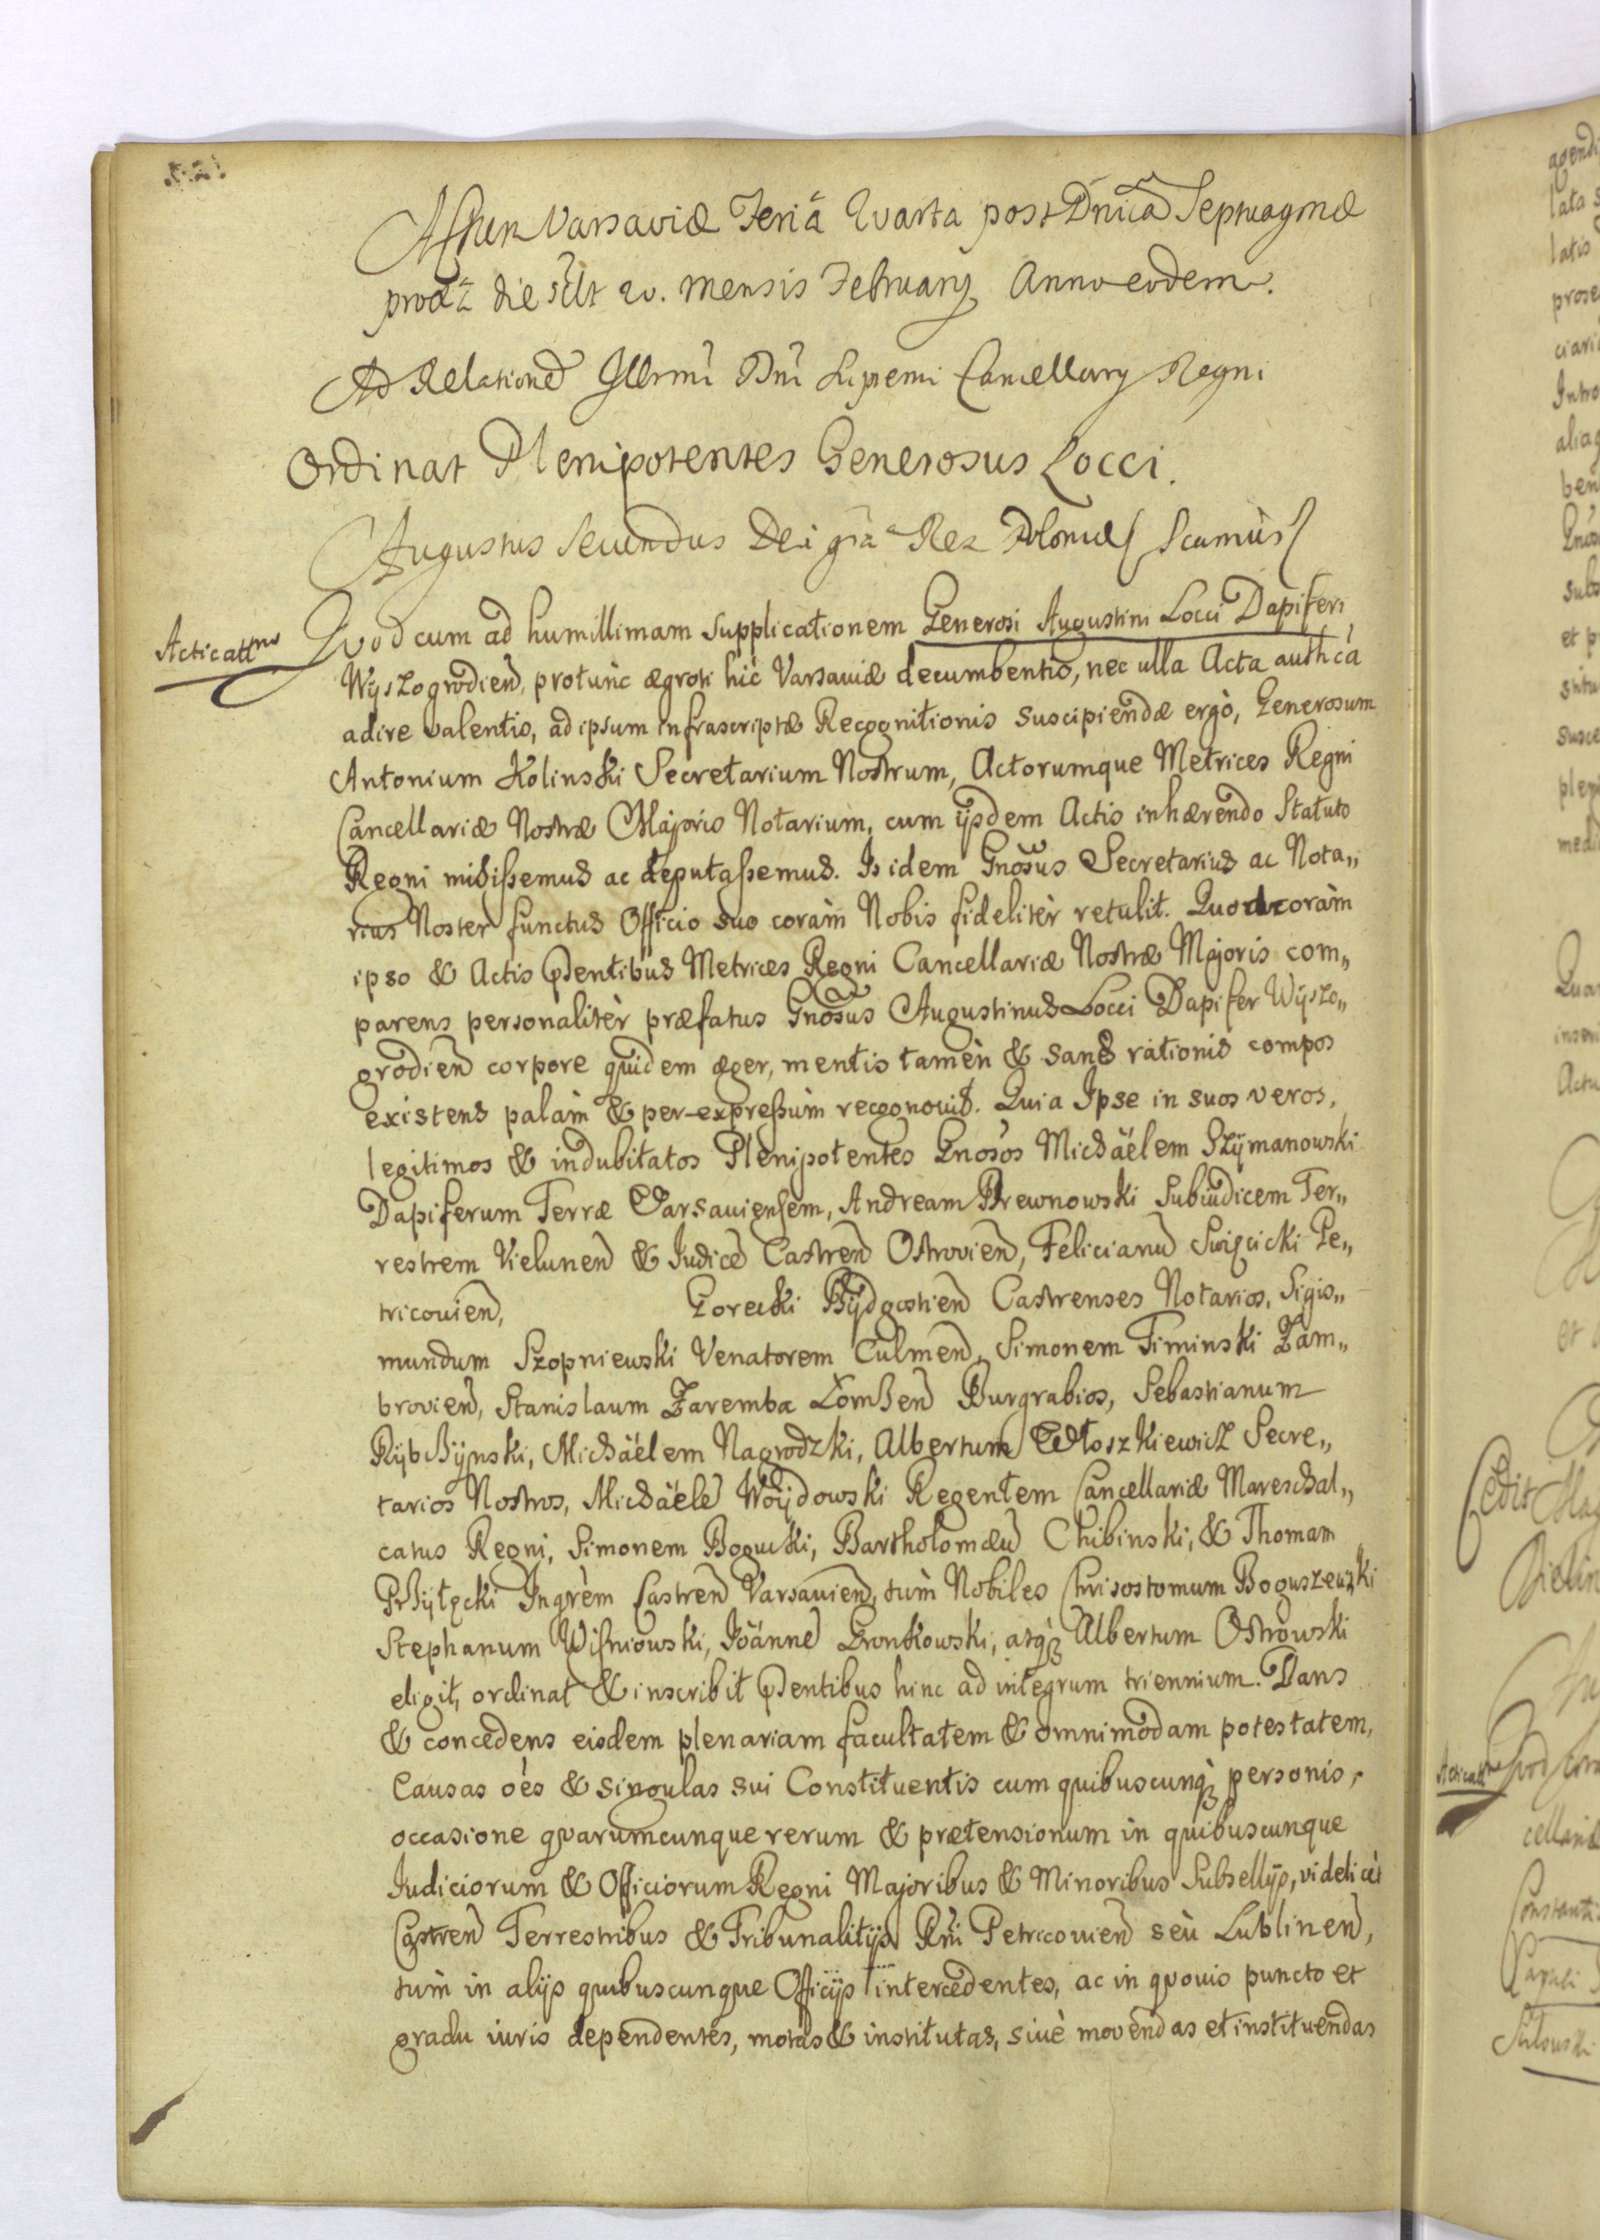 Actum Varsaviæ Feriâ Qvarta post Dnica Septuagmæ
die scilt 20. mensis Februarij Anno eodem.
Ad Relatione Illrmi Dni Supremi Cancellarij Regni
Ordinat Plenipotentes Generosus Locci.
Augustus Secundus Dei gra Rex Poloniæ
Acticattno
Qvod cum ad humillimam supplicationem Generosi Augustini Locci Dapiferi,
Wyszogrodien, protunc ægroti hic Varsaviæ decumbentis, nec ulla Acta authca
adire valentis, ad ipsum infrascriptæ Recognitionis suscipiendæ ergò, Generosum
Antonium Kolinski Secretarium Nostrum, Actorumque Metrices Regni
Cancellariæ Nostræ Majoris Notarium, cum ijsdem Actis inhærendo Statuto
Regni misissemus ac deputassemus. Is idem Gnosus Secretarius ac Nota„
rius Noster functus Officio suo coràm Nobis fidelitèr retulit. Quod coràm
ipso & Actis pntibus Metrices Regni Cancellariæ Nostræ Majoris com„
parens personalitèr præfatus Gnosus Augustinus Locci Dapifer Wyszo„
grodien corpore quidem æger, mentis tamèn & sanæ rationis compos
existens palàm & per-expressùm recognovit. Quia Ipse in suos veros,
legitimos & indubitatos Plenipotentes Gnosos Michäelem Szÿmanowski
Dapiferum Terræ Varsaviensem, Andream Drewnowski Subiudicem Ter„
restrem Vielunen & Iudice Castren Ostrovien, Felicianu Swięcicki Pe„
tricovien, Gorecki Bÿdgostien Castrenses Notarios, Sigis„
mundum Szopniewski Venatorem Culmen, Simonem Timinski Zam„
brovien, Stanislaum Zaremba Łomzen Burgrabios, Sebastianum
Rÿbczÿnski, Michäelem Nagrodzki, Albertum Włoszkiewicz Secre„
tarios Nostros, Michäele Woÿdowski Regentem Cancellariæ Mareschal„
catus Regni, Simonem Bogucki, Bartholomæu Chibinski, & Thomam
Przyłęcki Ingrèm Castren Varsavien, tùm Nobiles Chrisostomum Boguszewski
Stephanum Wiśniowski, Joänne Gronkowski, atq; Albertum Ostrowski
eligit, ordinat & inscribit pntibus hinc ad integrum triennium. Dans
& concedens eisdem plenariam facultatem & omnimodam potestatem,
Causas oès & singulas sui Constituentis cum quibuscunq; personis,
occasione qvarumcunque rerum & prætensionum in quibuscunque
Iudiciorum & Officiorum Regni Majoribus & Minoribus Subsellijs, videlicèt
Castren Terrestribus & Tribunalitijs Rni Petricovien seù Lublinen,
tùm in alijs quibuscunque Officijs intercedentes, ac in qvovis puncto et
gradu iuris dependentes, motas & institutas, sivè movendas et instituendas